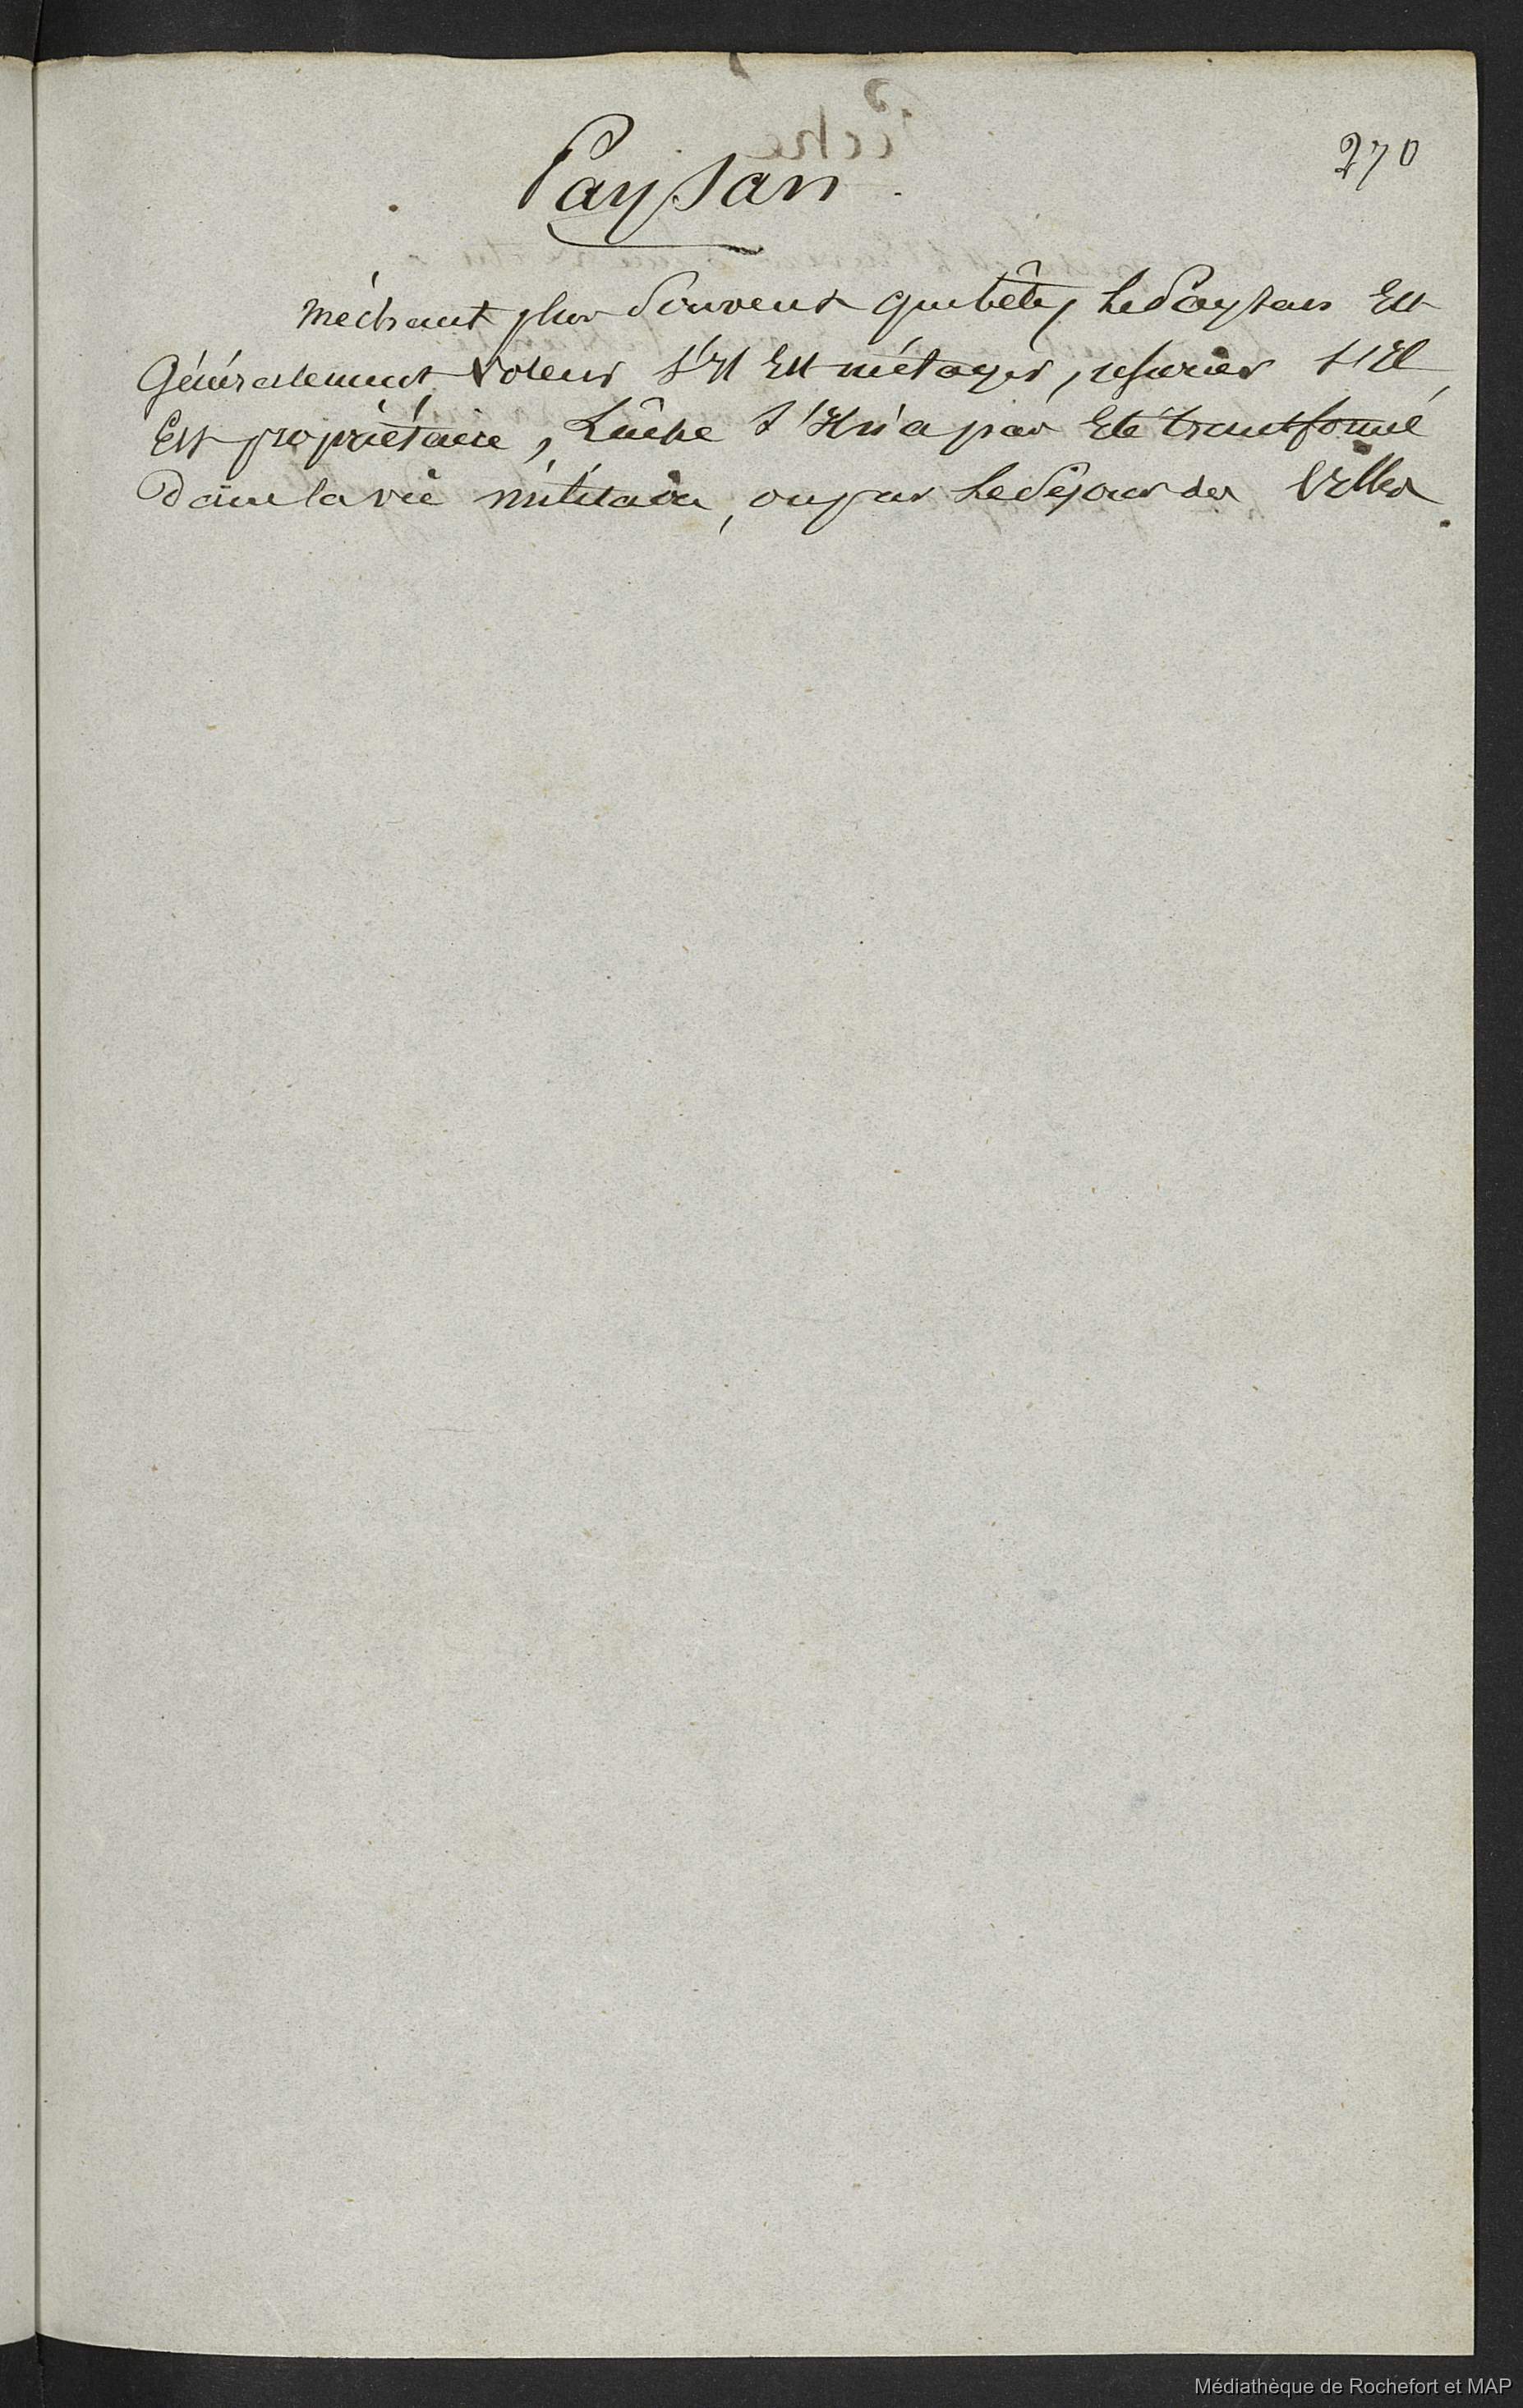 270
Paysan.
méchant plus souvent que bête, Le Paysan Est
Généralement, voleur s'Il Est métayer, usurier s'Il
Est propriétaire, Lâche s'Il n'a pas Eté transformé
Dans la vie militaire, ou par Le Séjour des Villes.
Médiathèque de Rochefort et MAP